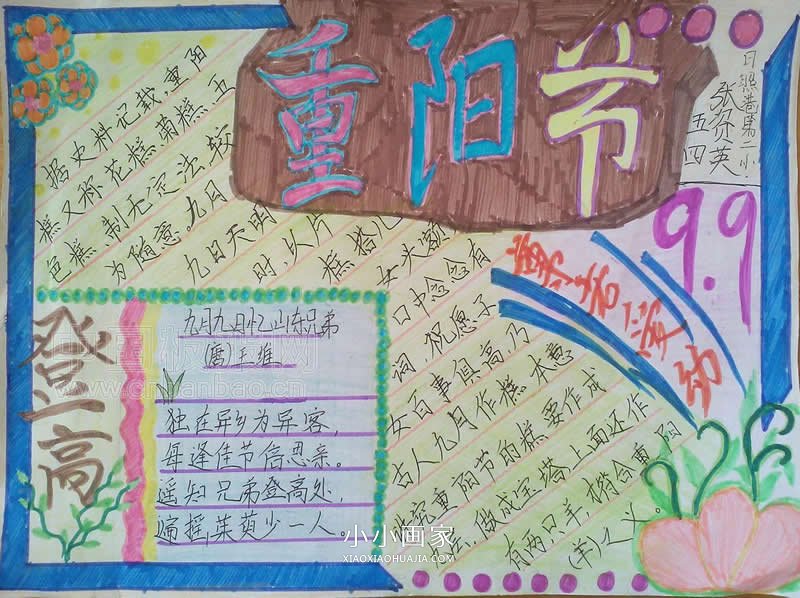 重阳节
日照港第二小
张弥英
五四
9.9
据史料记载,重阳
糕又称花糕、菊糕、五
色糕,制无定法,较
为随意。九日
九日天明
时,以片
糕搭儿
女头额,
口中念念有
词,祝愿子
女百事俱高,乃
古人九月作糕本意
重阳节的糕要作成
做成宝塔,上面还作
有两只羊,揩合重阳
(羊)之义。
登高
九月九日忆山东兄弟
(唐)王维
独在异乡为异客,
每逢佳节倍思亲。
遥知兄弟登高处,
遍插茱萸少一人
小小画家
XIAOXIAOHUAJIA.COM